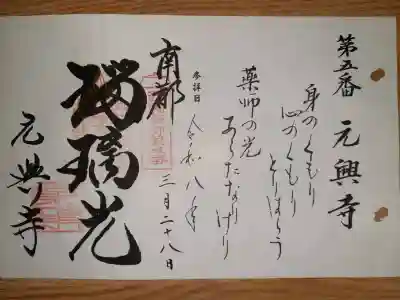 第五番 元興寺
身のくもり
心のくもり
とりはらう
薬師の光
あらたなり
けり
参拝日
令和八年
三月二十八日
南都
瑠璃光
元興寺